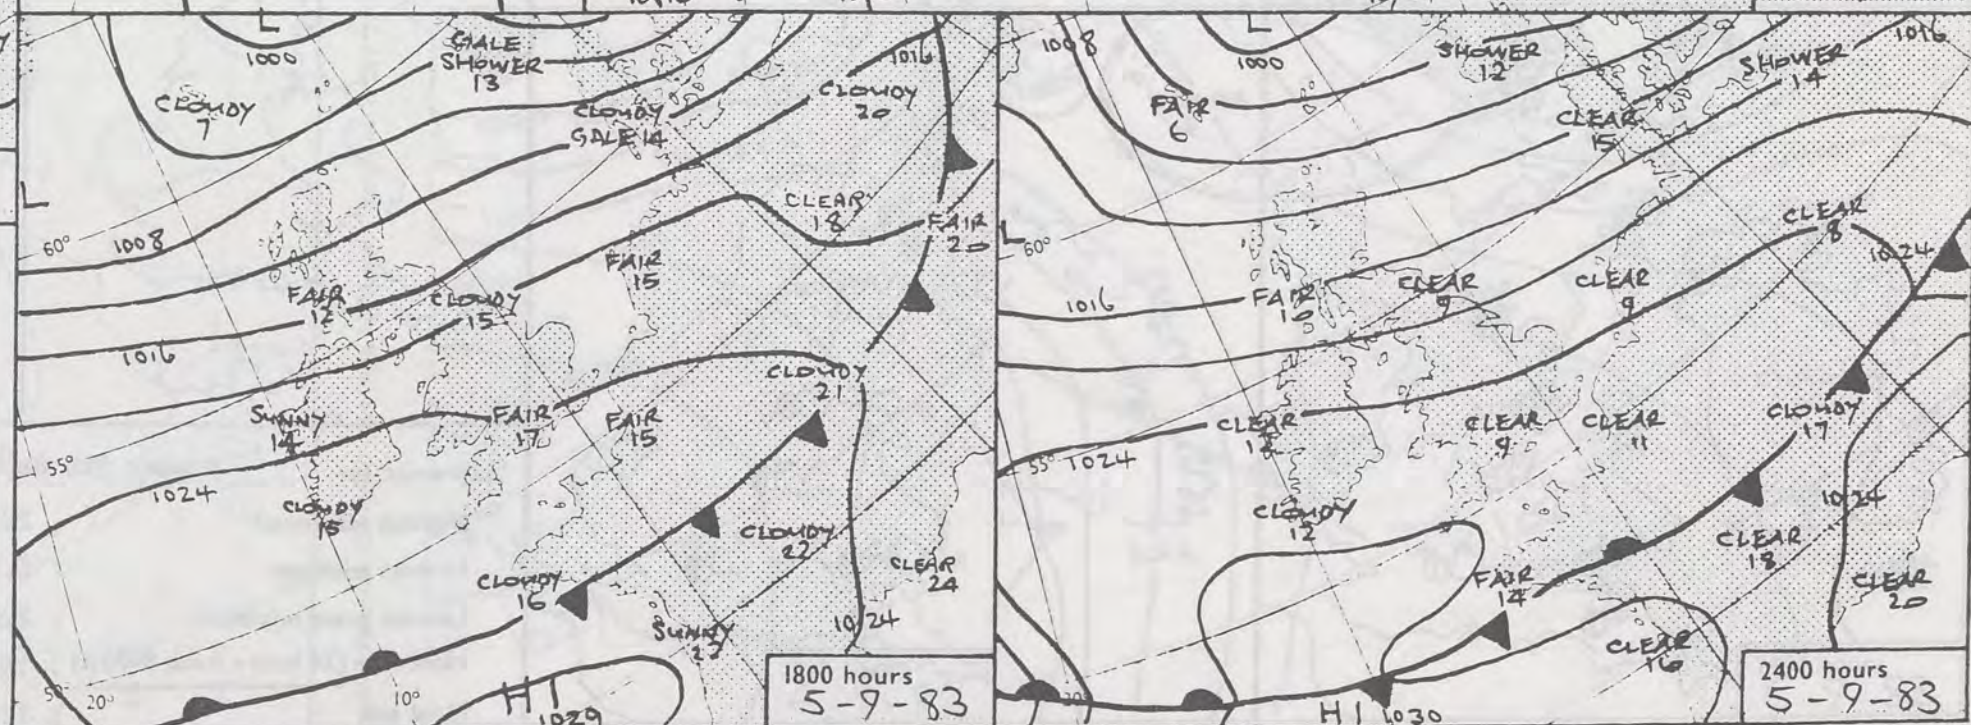 L
1000
GALE
SHOWER
13
1016
CLOUDY
7
CLOUDY
GALE 14
CLOUDY
20
L
60°
1008
CLEAR
18
FAIR
20
FAIR
15
FAIR
12
CLOUDY
15
1016
CLOUDY
21
SUNNY
14
FAIR
17
FAIR
15
55°
1024
CLOUDY
15
CLOUDY
22
CLEAR
24
CLOUDY
16
1024
SUNNY
50°
20°
10°
HI
1029
1800 hours
5-9-83
L
1008
1000
SHOWER
12
1016
SHOWER
14
FAIR
6
CLEAR
15
L
60°
CLEAR
8
1024
1016
FAIR
10
CLEAR
9
CLEAR
9
CLOUDY
17
CLEAR
12
CLEAR
9
CLEAR
11
55°
1024
CLOUDY
12
1024
CLEAR
18
FAIR
14
CLEAR
20
CLEAR
16
20°
HI 1030
2400 hours
5-9-83